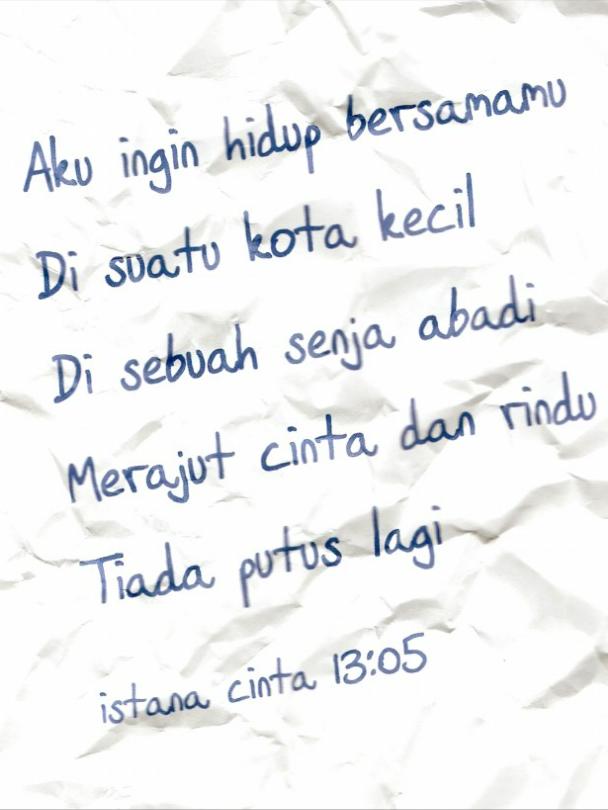 Aku ingin hidup bersamamu
Di suatu kota kecil
Di sebuah senja abadi
Merajut cinta dan rindu
Tiada putus lagi
istana cinta 13:05